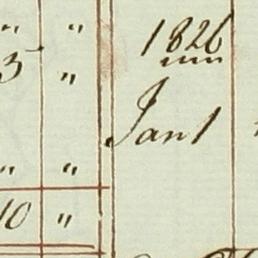 " "
1826
5 "
Jan 1
" "
10 "